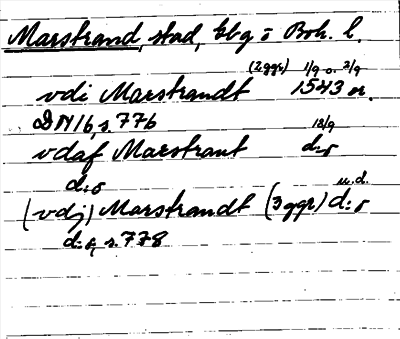 Marstrand, stad, kbg o Boh. l.
(2 ggr) 1/9 o. 2/9
vdi Marstrandt 1543 or.
DN 16, s. 776
18/9
vdaf Marstrant d:o
d:o
u.d.
(vdj) Marstrandt (3 ggr) d:o
d:o, s. 778